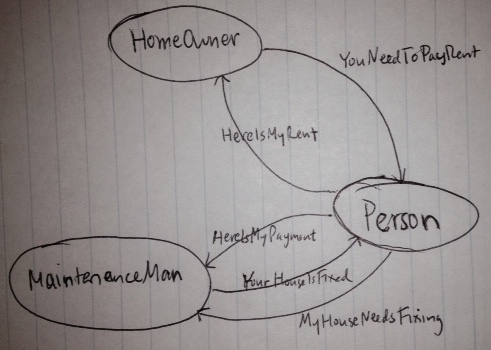 HomeOwner
YouNeedToPayRent
HereIsMyRent
Person
HereIsMyPayment
MaintenenceMan
YourHouseIsFixed
MyHouseNeedsFixing